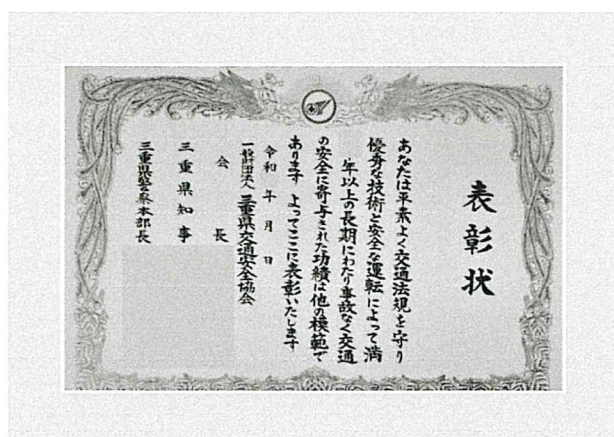 表彰状
あなたは平素よく交通法規を守り
優秀な技術と安全な運転によって満
年以上の長期にわたり事故なく交通
の安全に寄与された功績は他の模範で
あります よってここに表彰いたします
令和 年 月 日
一般財団法人 三重県交通安全協会
会長
三重県知事
三重県警察本部長